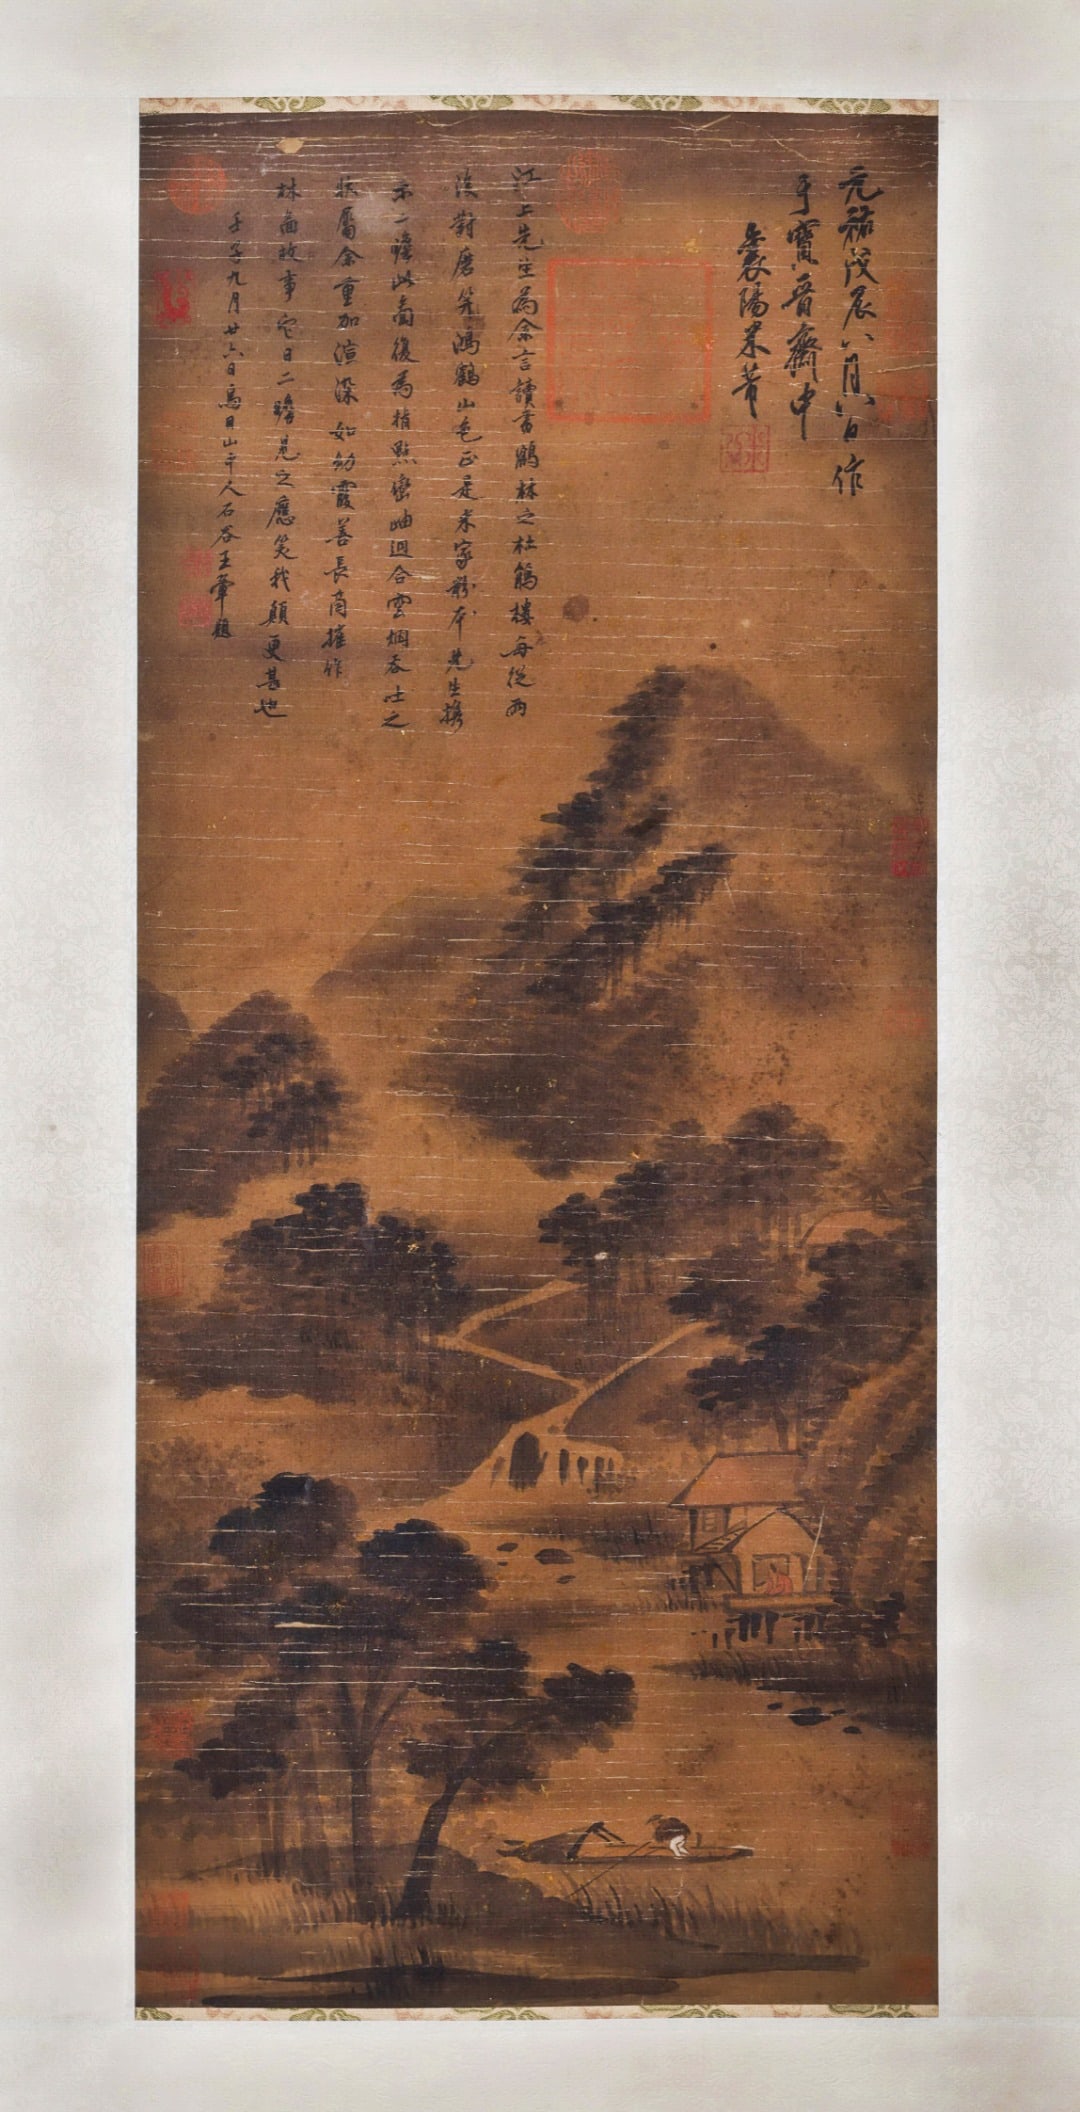 元祐戊辰八月八日作
于寶晉齋中
襄陽米芾
江上先生為余言讀書鶴林之杜鵑樓每從雨
後對磨笄鴻鶴山色正是米家粉本先生攜
示二瞻此圖復為指點巒岫迴合雲烟吞吐之
狀屬余重加渲染如幼霞善長商搉作
林圖故事它日二瞻見之應笑我顛更甚也
壬子九月廿六日烏目山中人石谷王翬題